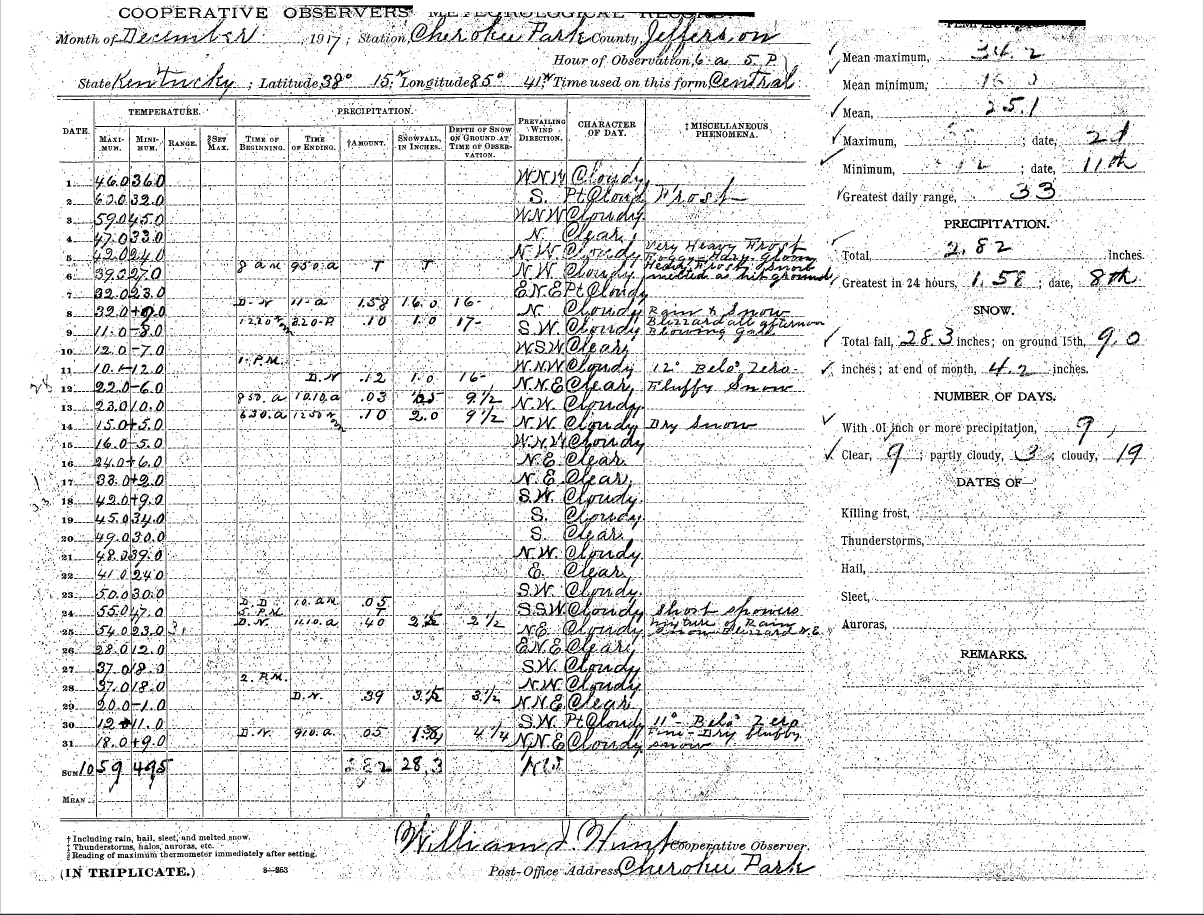 COOPERATIVE OBSERVERS' METEOROLOGICAL RECORD
Month of December, 1917; Station, Cherokee Park County, Jefferson
Hour of Observation, 6 a 5 P
State Kentucky; Latitude 38° 15'; Longitude 85° 41'; Time used on this form, Central
DATE. TEMPERATURE. PRECIPITATION. PREVAILING WIND DIRECTION. CHARACTER OF DAY. ‡MISCELLANEOUS PHENOMENA.
MAXIMUM. MINIMUM. RANGE. §SET MAX. TIME OF BEGINNING. TIME OF ENDING. †AMOUNT. SNOWFALL, IN INCHES. DEPTH OF SNOW ON GROUND AT TIME OF OBSERVATION.
1 46.0 36.0 W.N.W Cloudy
2 62.0 32.0 S. Pt Cloud Frost
3 59.0 45.0 W.N.W Cloudy
4 47.0 33.0 N. Clear
5 42.0 24.0 N.W. Cloudy Very Heavy Frost Foggy-Hazy-Gloom
6 39.0 27.0 8 am 950.a T T N.W. Cloudy Heavy Frost, Snow melted as hit ground
7 32.0 23.0 E.N.E Pt Cloudy
8 32.0 +9.0 D.N 11-a 1.58 16.0 16- N. Cloudy Rain & Snow
9 11.0 -8.0 820.P .10 1.0 17- S.W. Cloudy Blizzard all afternoon Blowing Gale
10 12.0 -7.0 W.S.W Clear
11 10.1 -12.0 1.P.M. W.N.W Cloudy 12° Belo' Zero
12 22.0 -6.0 D.N .12 1.0 16- N.N.E Clear Fluffy Snow
13 23.0 10.0 850.a 1010.a .03 9 1/2 N.W. Cloudy
14 15.0 +5.0 630.a 1250 .10 2.0 9 1/2 N.W. Cloudy Dry Snow
15 16.0 -5.0 W.N.W Cloudy
16 24.0 +6.0 N.E. Clear
17 33.0 +2.0 N.E. Clear
18 42.0 +9.0 S.W. Cloudy
19 45.0 34.0 S. Cloudy
20 49.0 30.0 S. Clear
21 48.0 39.0 N.W. Cloudy
22 41.0 24.0 E. Clear
23 50.0 30.0 S.W. Cloudy
24 55.0 47.0 10.am .05 S.S.W Cloudy Short showers
25 54.0 23.0 D.N. 1110.a .40 2 1/2 N.E. Cloudy Mixture of Rain Snow Blizzard N.E.
26 28.0 12.0 E.N.E Clear
27 37.0 18.0 S.W. Cloudy
28 37.0 18.0 2.P.M. N.W. Cloudy
29 20.0 -1.0 D.N. .39 3 1/2 N.N.E Clear
30 12 11.0 S.W. Pt Cloudy 11° Belo' Zero
31 18.0 +9.0 D.N. 910.a .05 4 1/4 N.N.E Cloudy Fine-Dry fluffy snow
SUM 1059 495 2.82 28.3
MEAN
† Including rain, hail, sleet, and melted snow.
‡ Thunderstorms, halos, auroras, etc.
§ Reading of maximum thermometer immediately after setting.
(IN TRIPLICATE.) 8—253
William J. Hunt Cooperative Observer.
Post-Office Address, Cherokee Park
TEMPERATURE.
Mean maximum, 34.2
Mean minimum,
Mean, 25.1
Maximum, ; date, 2d
Minimum, 12 ; date, 11th
Greatest daily range, 33
PRECIPITATION.
Total 2.82 inches
Greatest in 24 hours, 1.58; date, 8th
SNOW.
Total fall, 28.3 inches; on ground 15th, 9.0
inches; at end of month, 4.2 inches.
NUMBER OF DAYS.
With .01 inch or more precipitation, 9
Clear, 9; partly cloudy, 3; cloudy, 19
DATES OF—
Killing frost,
Thunderstorms,
Hail,
Sleet,
Auroras,
REMARKS.